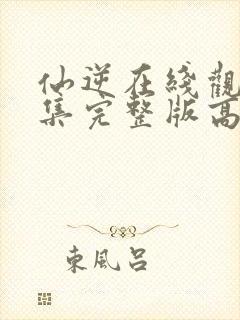 仙逆在綫觀
集完整版高
東風呂